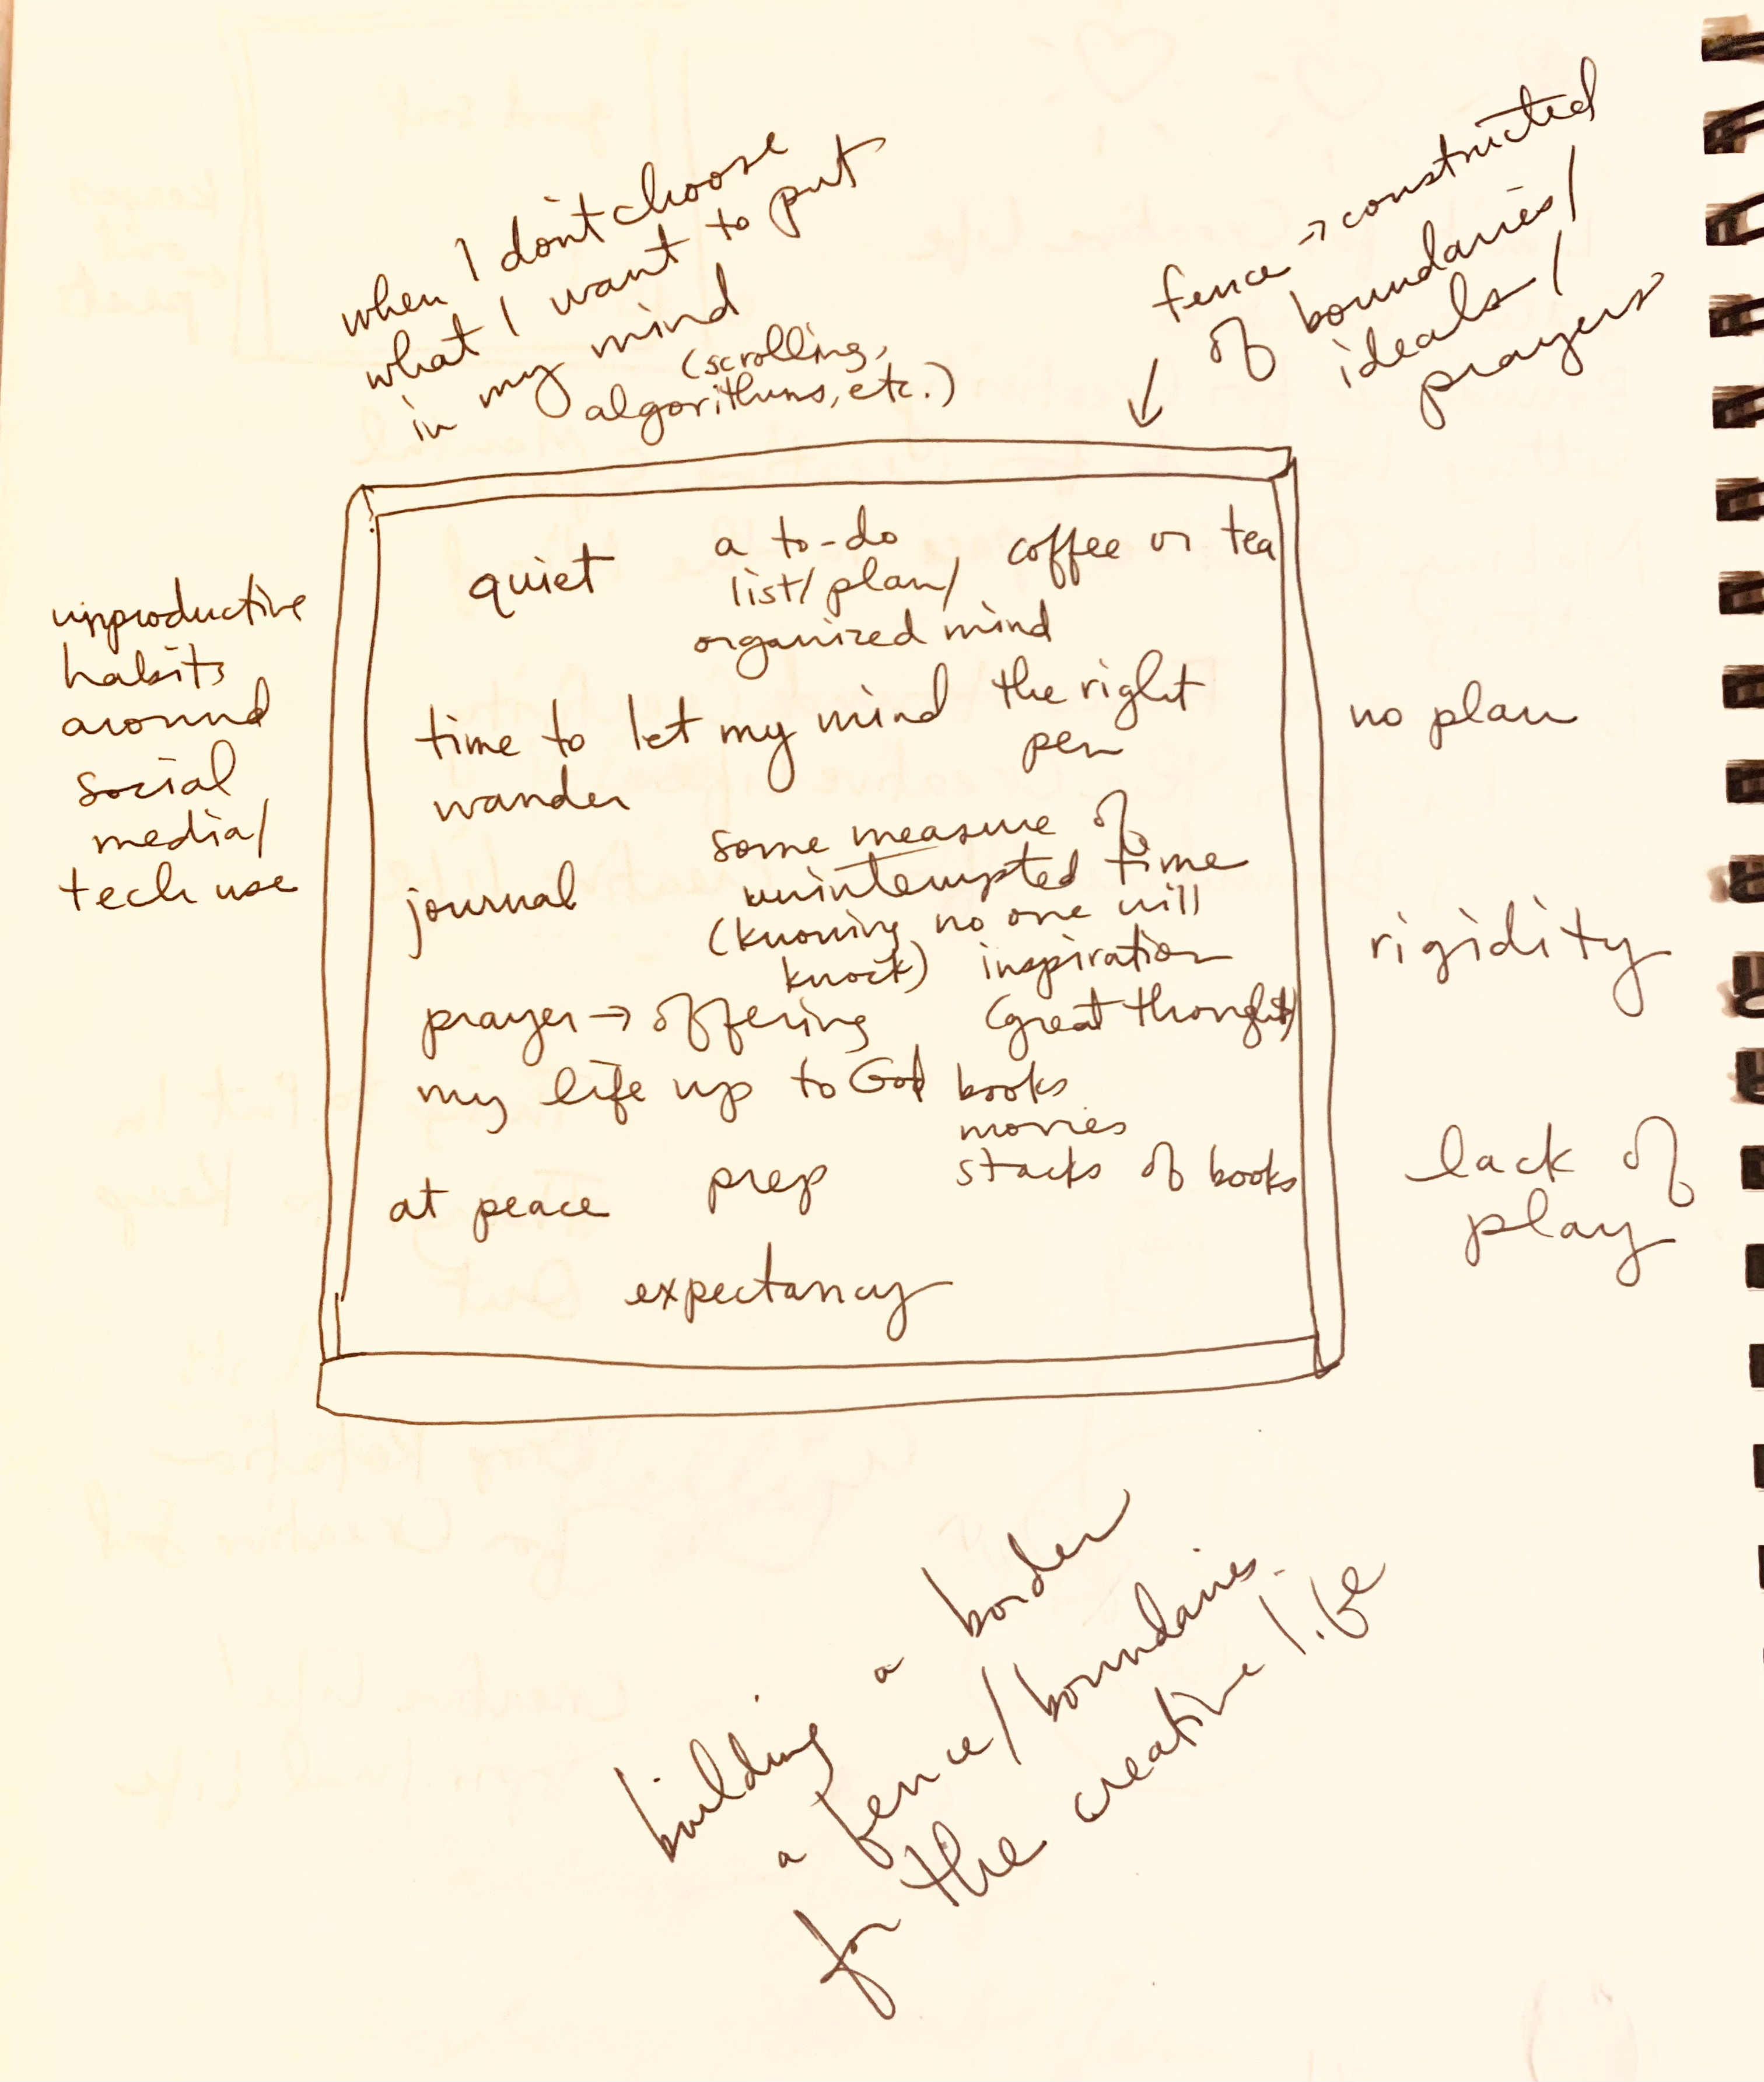 when I don't choose
what I want to put
in my mind
(scrolling,
algorithms, etc.)
fence → constructed
of boundaries/
ideals/
prayers
unproductive
habits
around
social
media/
tech use
quiet
a to-do
list/plan/
organized mind
coffee or tea
time to let my mind
wander
the right
pen
journal
some measure of
uninterrupted time
(knowing no one will
knock)
inspiration
(great thought)
prayer → offering
my life up to God
books
movies
stacks of books
at peace
prep
expectancy
no plan
rigidity
lack of
play
building a border
a fence/boundaries
for the creative life